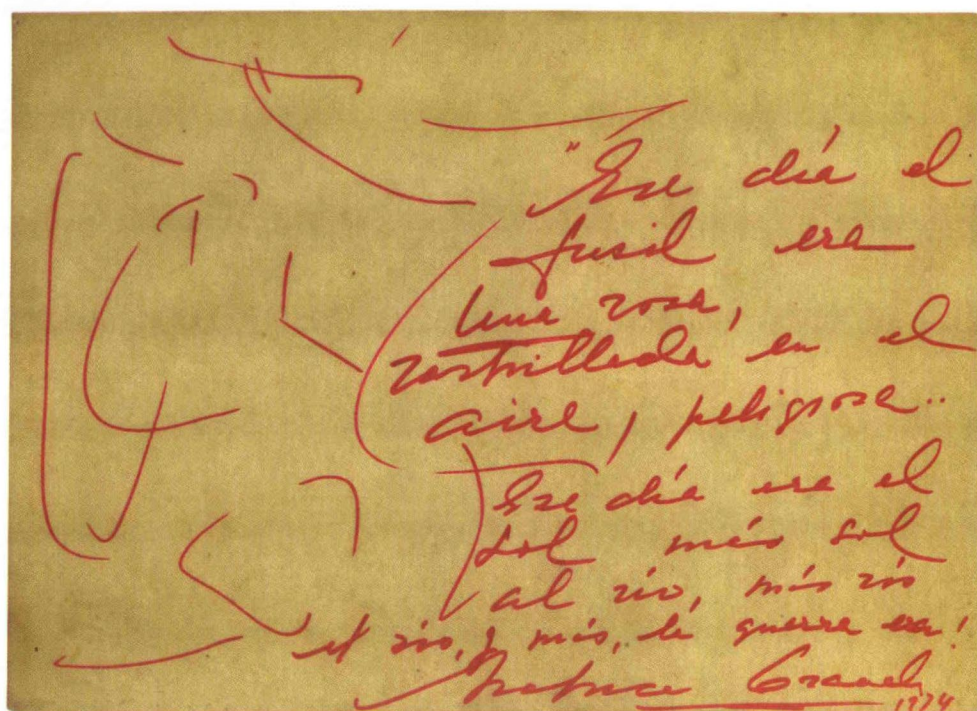 "Ese día el
fusil era
una rosa,
rastrillada en el
aire, peligrosa..
Ese día era el
sol más sol
al río, más río
el río, y más, la guerra era!
1974